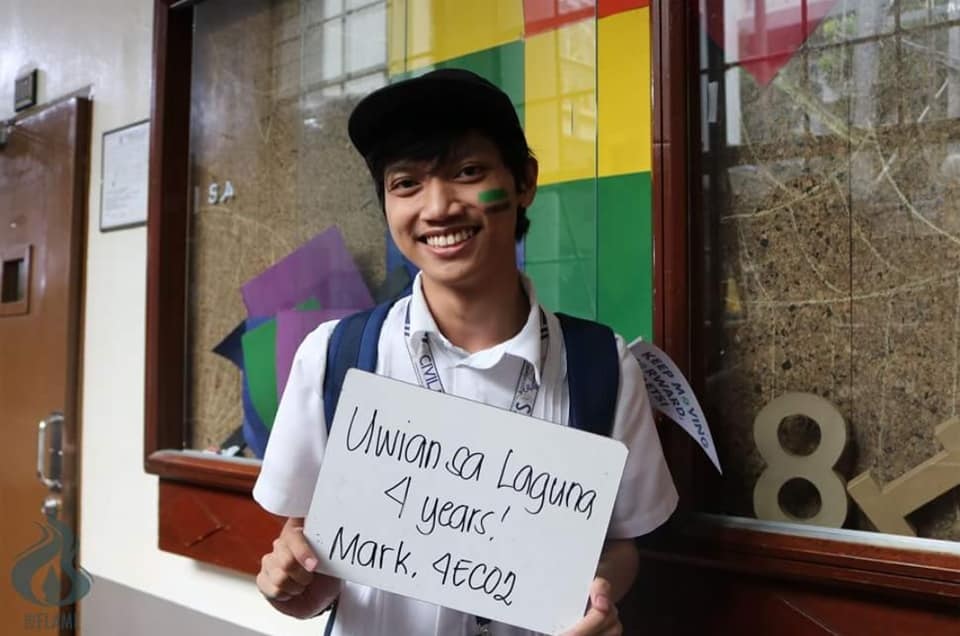 SA
CIVIL
KEEP MOVING
FORWARD,
Uwian sa Laguna
4 years!
Mark. 4ECO2
8
@FLAM